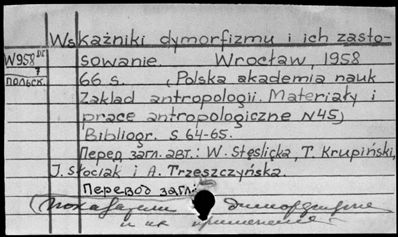 Wskaźniki dymorfizmu i ich zasto-
W958 sowanie. Wrocław, 1958
7
польск. 66 s. (Polska akademia nauk
Zakład antropologii. Materiały i
prace antropologiczne N45)
Bibliogr. S. 64-65.
Перед загл. авт.: W. Stęślicka, T. Krupiński,
J. Słociak i A. Trzeszczyńska.
Перевод загл.:
Показатели диморфизма
и их применение